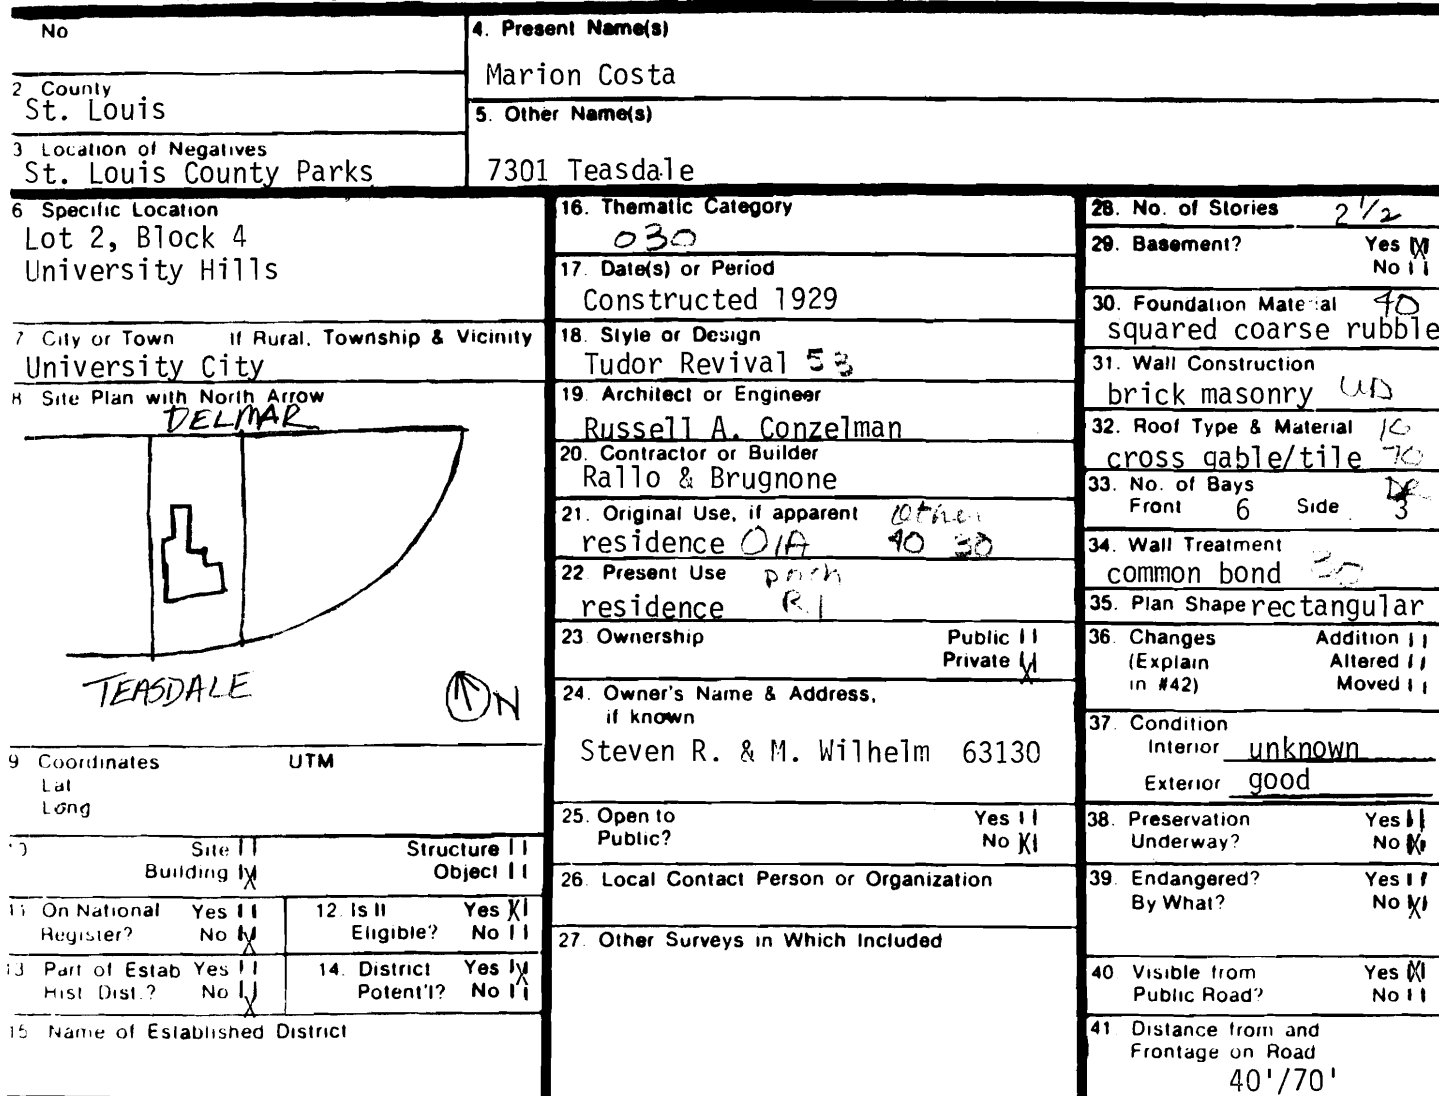 No
4. Present Name(s)
Marion Costa
2 County
St. Louis
5. Other Name(s)
7301 Teasdale
3 Location of Negatives
St. Louis County Parks
6 Specific Location
Lot 2, Block 4
University Hills
7 City or Town If Rural, Township & Vicinity
University City
8 Site Plan with North Arrow
DELMAR
TEASDALE
N
9 Coordinates UTM
Lat
Long
10 Site Structure
Building X Object
11 On National Register? Yes No X
12. Is It Eligible? Yes X No
13 Part of Estab Hist. Dist.? Yes No X
14. District Potent'l? Yes X No
15 Name of Established District
16. Thematic Category
030
17. Date(s) or Period
Constructed 1929
18. Style or Design
Tudor Revival 53
19. Architect or Engineer
Russell A. Conzelman
20. Contractor or Builder
Rallo & Brugnone
21. Original Use, if apparent Other
residence 01A 40 30
22 Present Use porch
residence R.1
23 Ownership Public
Private X
24. Owner's Name & Address,
if known
Steven R. & M. Wilhelm 63130
25. Open to Yes
Public? No X
26. Local Contact Person or Organization
27. Other Surveys in Which Included
28. No. of Stories 2 1/2
29. Basement? Yes X
No
30. Foundation Material 40
squared coarse rubble
31. Wall Construction
brick masonry UD
32. Roof Type & Material
cross gable/tile 70
33. No. of Bays
Front 6 Side 3
34. Wall Treatment
common bond 30
35. Plan Shape rectangular
36. Changes Addition
(Explain Altered
in #42) Moved
37. Condition
Interior unknown
Exterior good
38. Preservation Yes
Underway? No X
39. Endangered? Yes
By What? No X
40 Visible from Yes X
Public Road? No
41 Distance from and
Frontage on Road
40'/70'